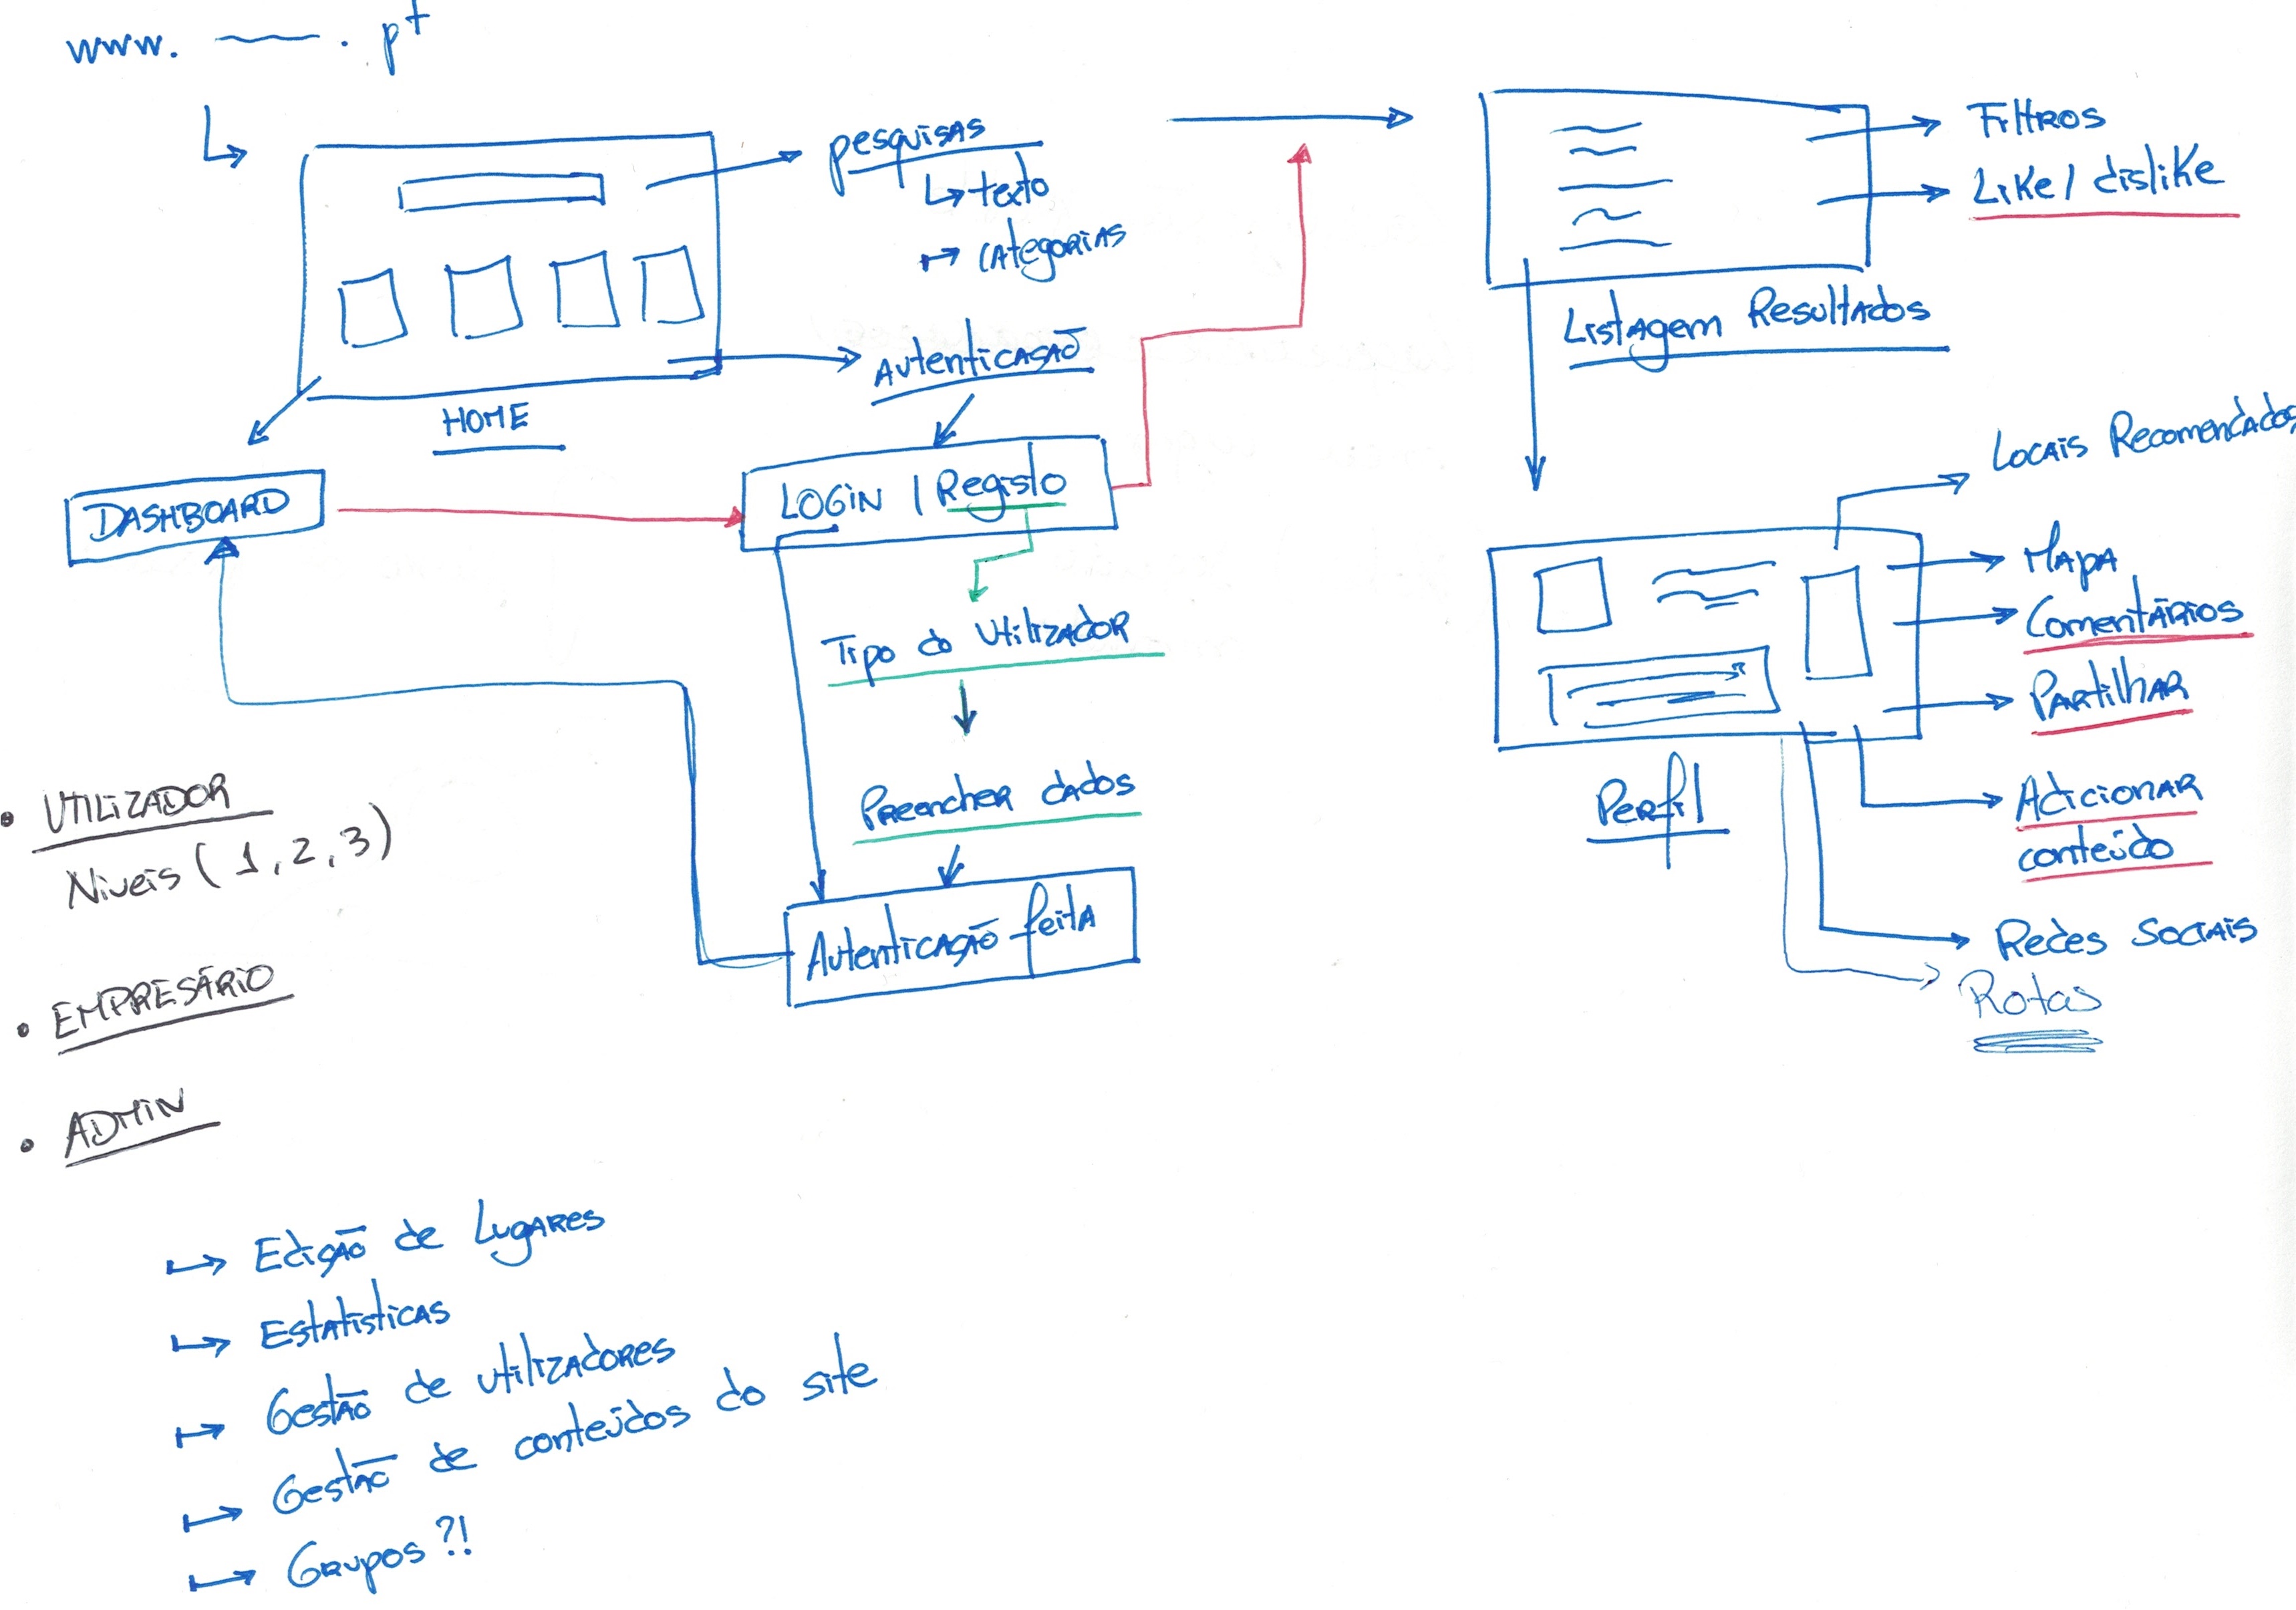 www. ~~~ . pt
pesquisas
texto
categorias
Autenticasão
HOME
DASHBOARD
LOGIN | Registo
Tipo do Utilizador
Preencher dados
Autenticação feita
Filtros
Like / dislike
Listagem Resultados
Locais Recomendados
Mapa
Comentários
Partilhar
Adicionar
conteúdo
Redes sociais
Rotas
Perfil
• UTILIZADOR
Níveis (1, 2, 3)
• EMPRESÁRIO
• ADMIN
Edição de Lugares
Estatísticas
Gestão de utilizadores
Gestão de conteúdos do site
Grupos ?!